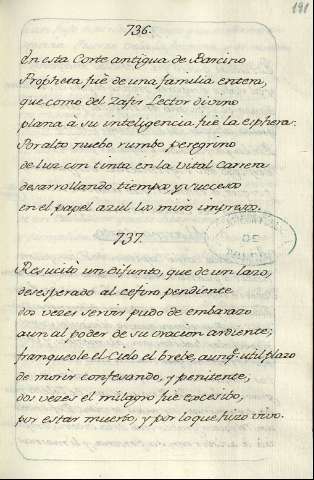 191
736.
En esta Corte antigua de Barcino
Propheta fuè de una familia entera,
que como del Zafir Lector divino
plana à su inteligencia fuè la esphera.
Por alto nuebo rumbo peregrino
de luz con tinta en la vital Carrera
desarrollando tiempos y succesos
en el papel azul los mirò impresos.
737.
Resucitò un difunto, que de un lazo,
desesperado al cefiro pendiente
dos vezes servir pudo de embarazo
aun al poder de su oracion ardiente;
franqueole el Cielo el brebe, aunq̃. util plazo
de morir confesando, y penitente,
dos vezes el milagro fue excesibo,
por estar muerto, y por lo que hizo vivo.